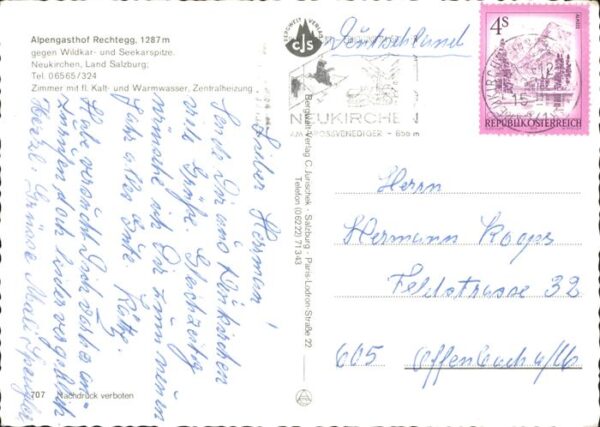 Alpengasthof Rechtegg, 1287 m
gegen Wildkar- und Seekarspitze.
Neukirchen, Land Salzburg;
Tel. 06565/324
Zimmer mit fl. Kalt- und Warmwasser, Zentralheizung
Lieber Hermann!
Sende Dir aus Neukirchen
viele Grüße. Gleichzeitig
wünsche ich Dir zum neuen
Jahr alles Gute. Käthe.
Habe versucht Dich
doch leider vergeblich
Herzl. Grüsse
707 Nachdruck verboten
BERGWELT VERLAG
CJS
Bergwelt-Verlag C. Jurischek · Salzburg · Paris-Lodron-Straße 22
Telefon (06222) 71343
Deutschland
NEUKIRCHEN
AM GROSSVENEDIGER - 856 m
4S
REPUBLIK ÖSTERREICH
Herrn
Hermann Koops
Feldstrasse 32
605 Offenbach a/M